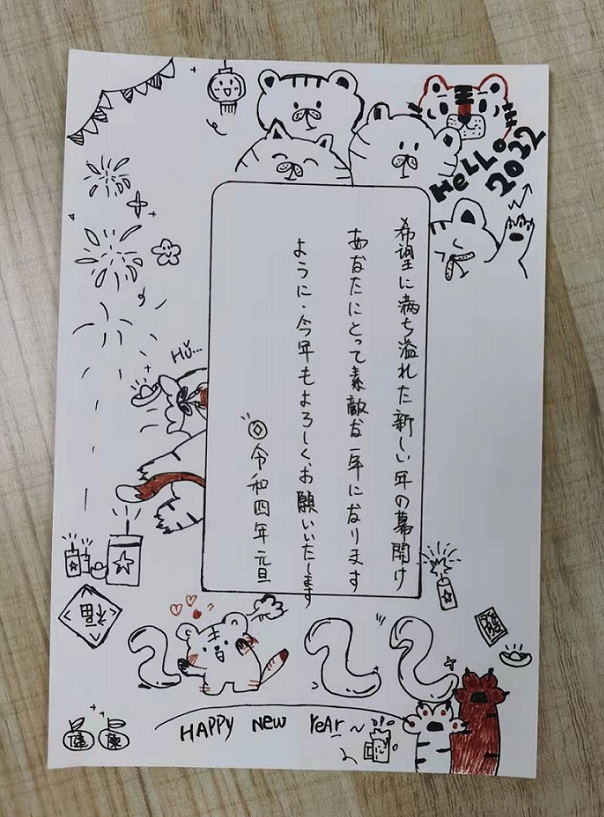 HELLO
2022
希望に満ち溢れた新しい年の幕開け
あなたにとって素敵な一年になります
ように、今年もよろしく、お願いいたします
令和四年元旦
Hu...
福
2 22
HAPPY New YeAr ~
健 康